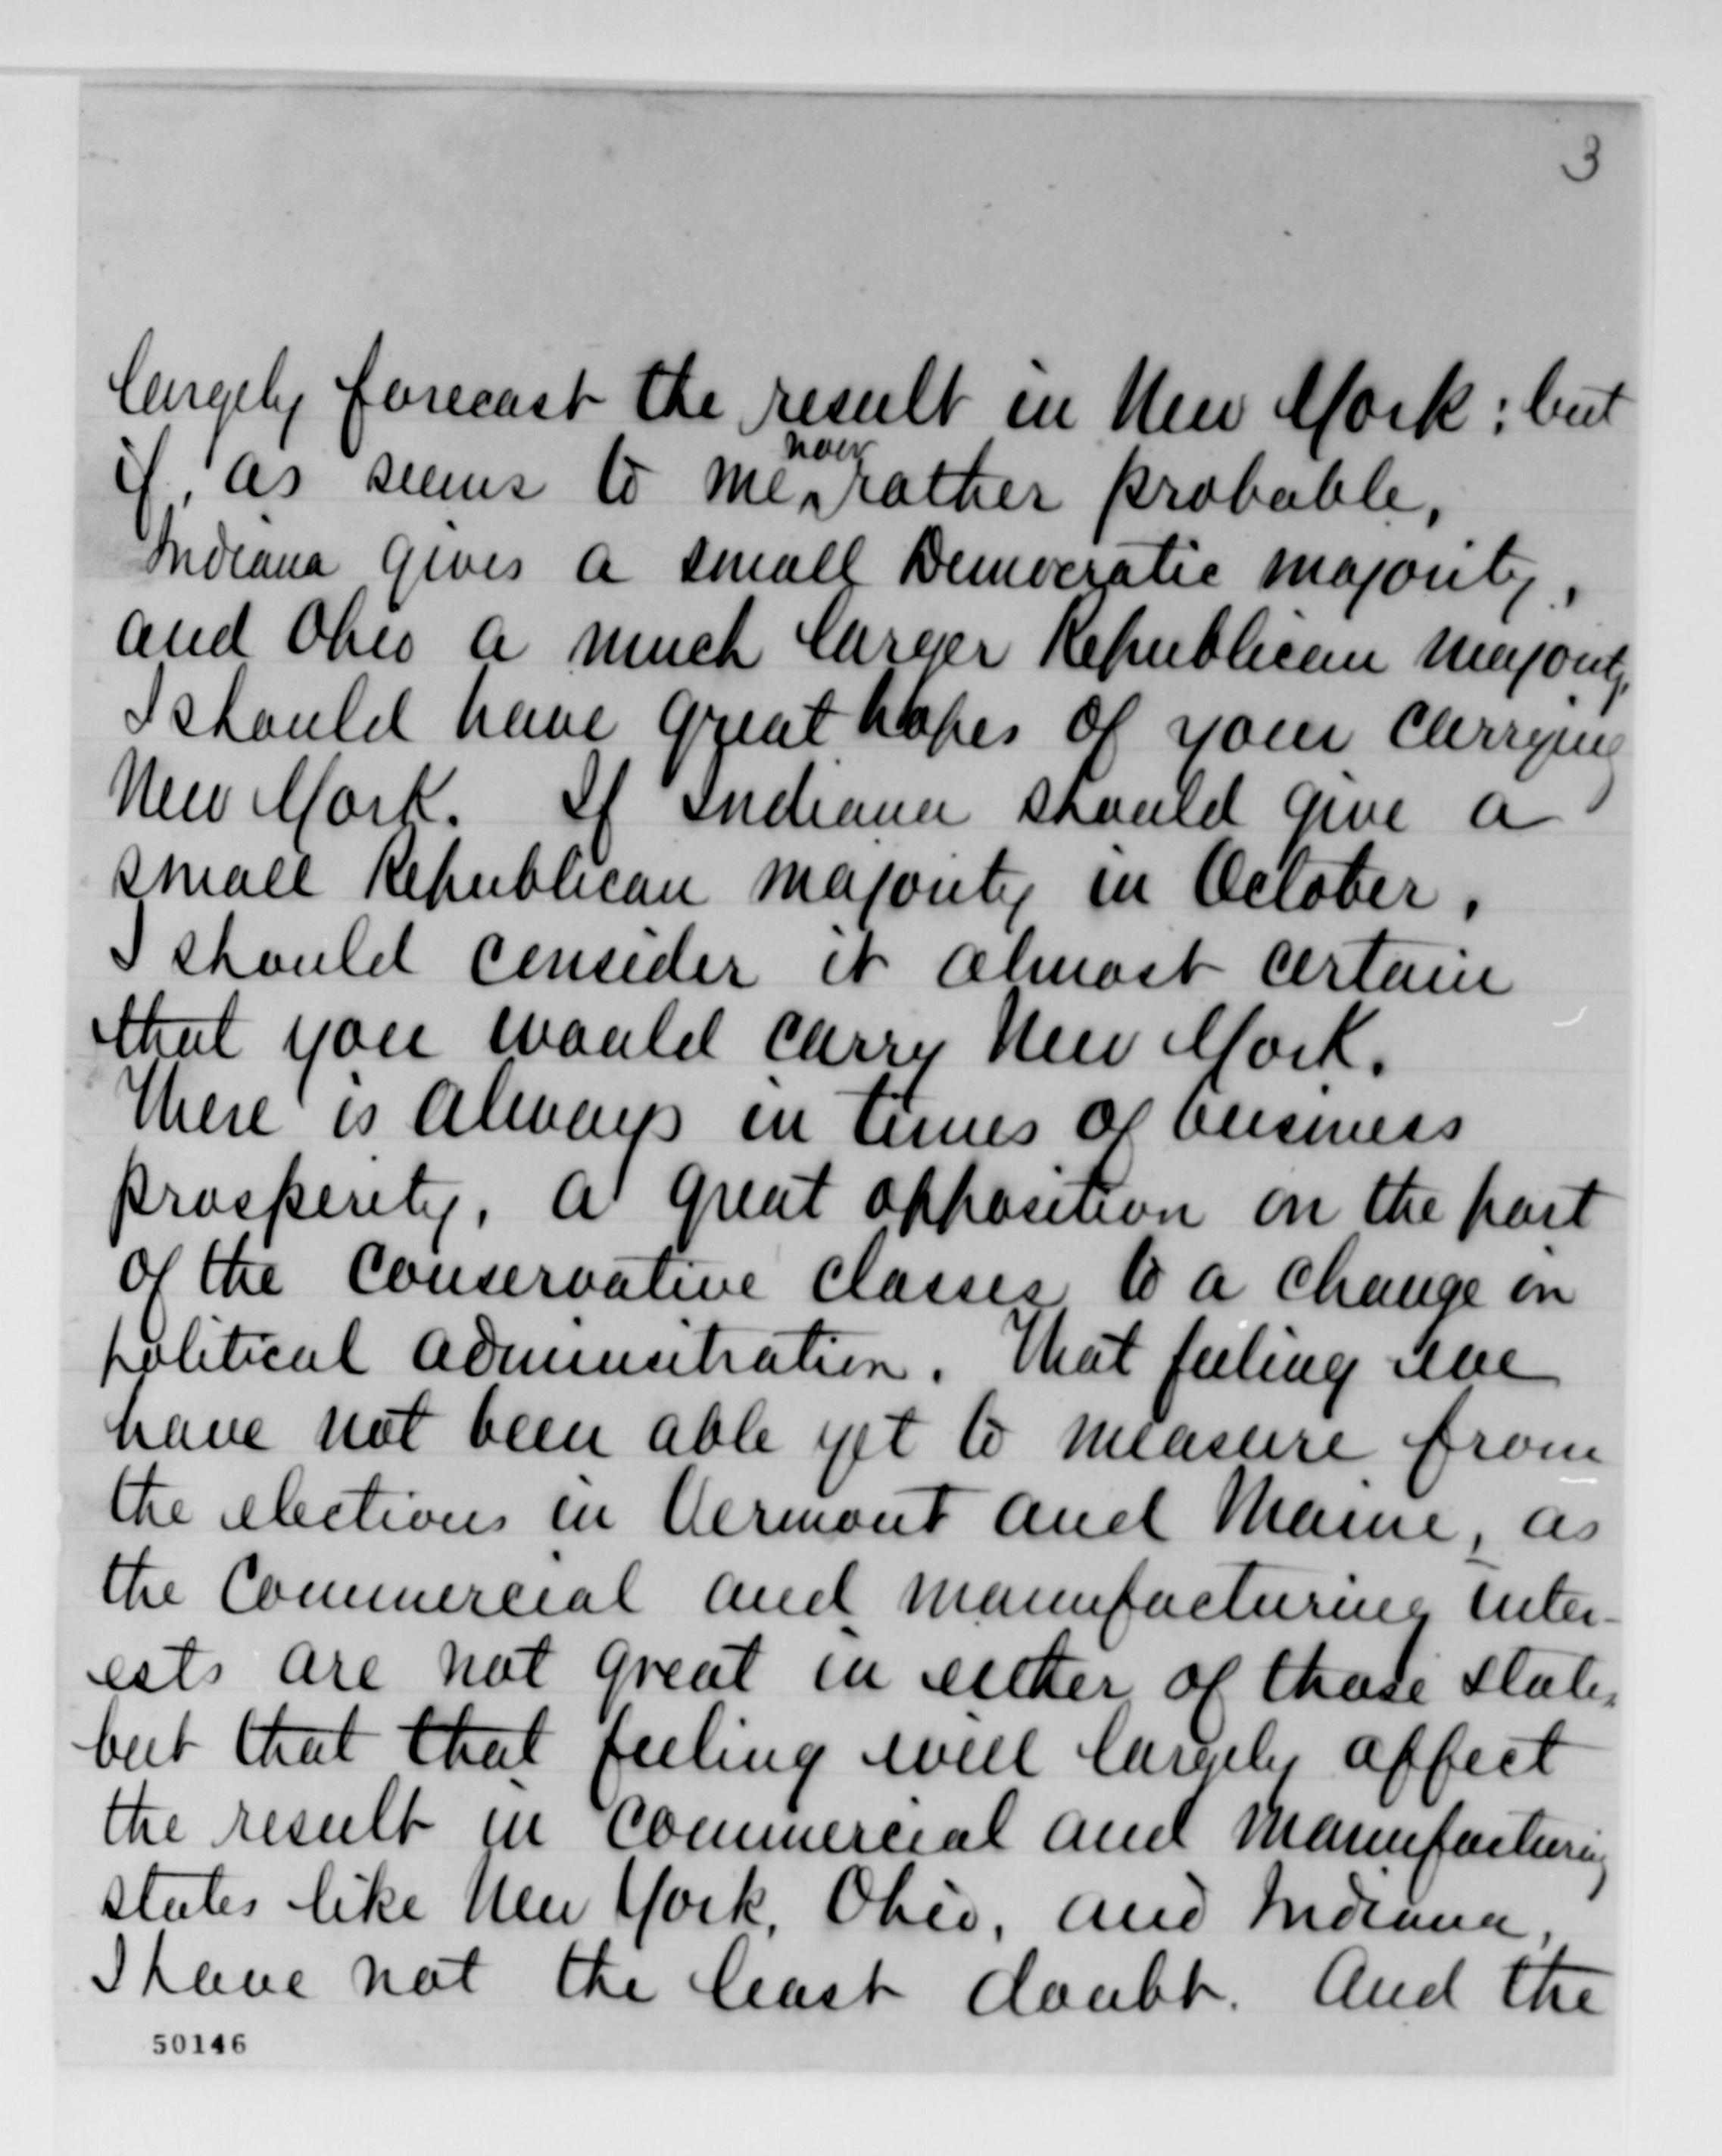 3
largely forecast the result in New York; but
if, as seems to me now rather probable,
Indiana gives a small Democratic majority,
and Ohio a much larger Republican majority,
I should have great hopes of your carrying
New York. If Indiana should give a
small Republican majority in October,
I should consider it almost certain
that you would carry New York.
There is always in times of business
prosperity, a great opposition on the part
of the conservative classes to a change in
political administration. That feeling we
have not been able yet to measure from
the elections in Vermont and Maine, as
the commercial and manufacturing inter-
ests are not great in either of those states,
but that that feeling will largely affect
the result in commercial and manufacturing
states like New York, Ohio, and Indiana,
I have not the least doubt. And the
50146